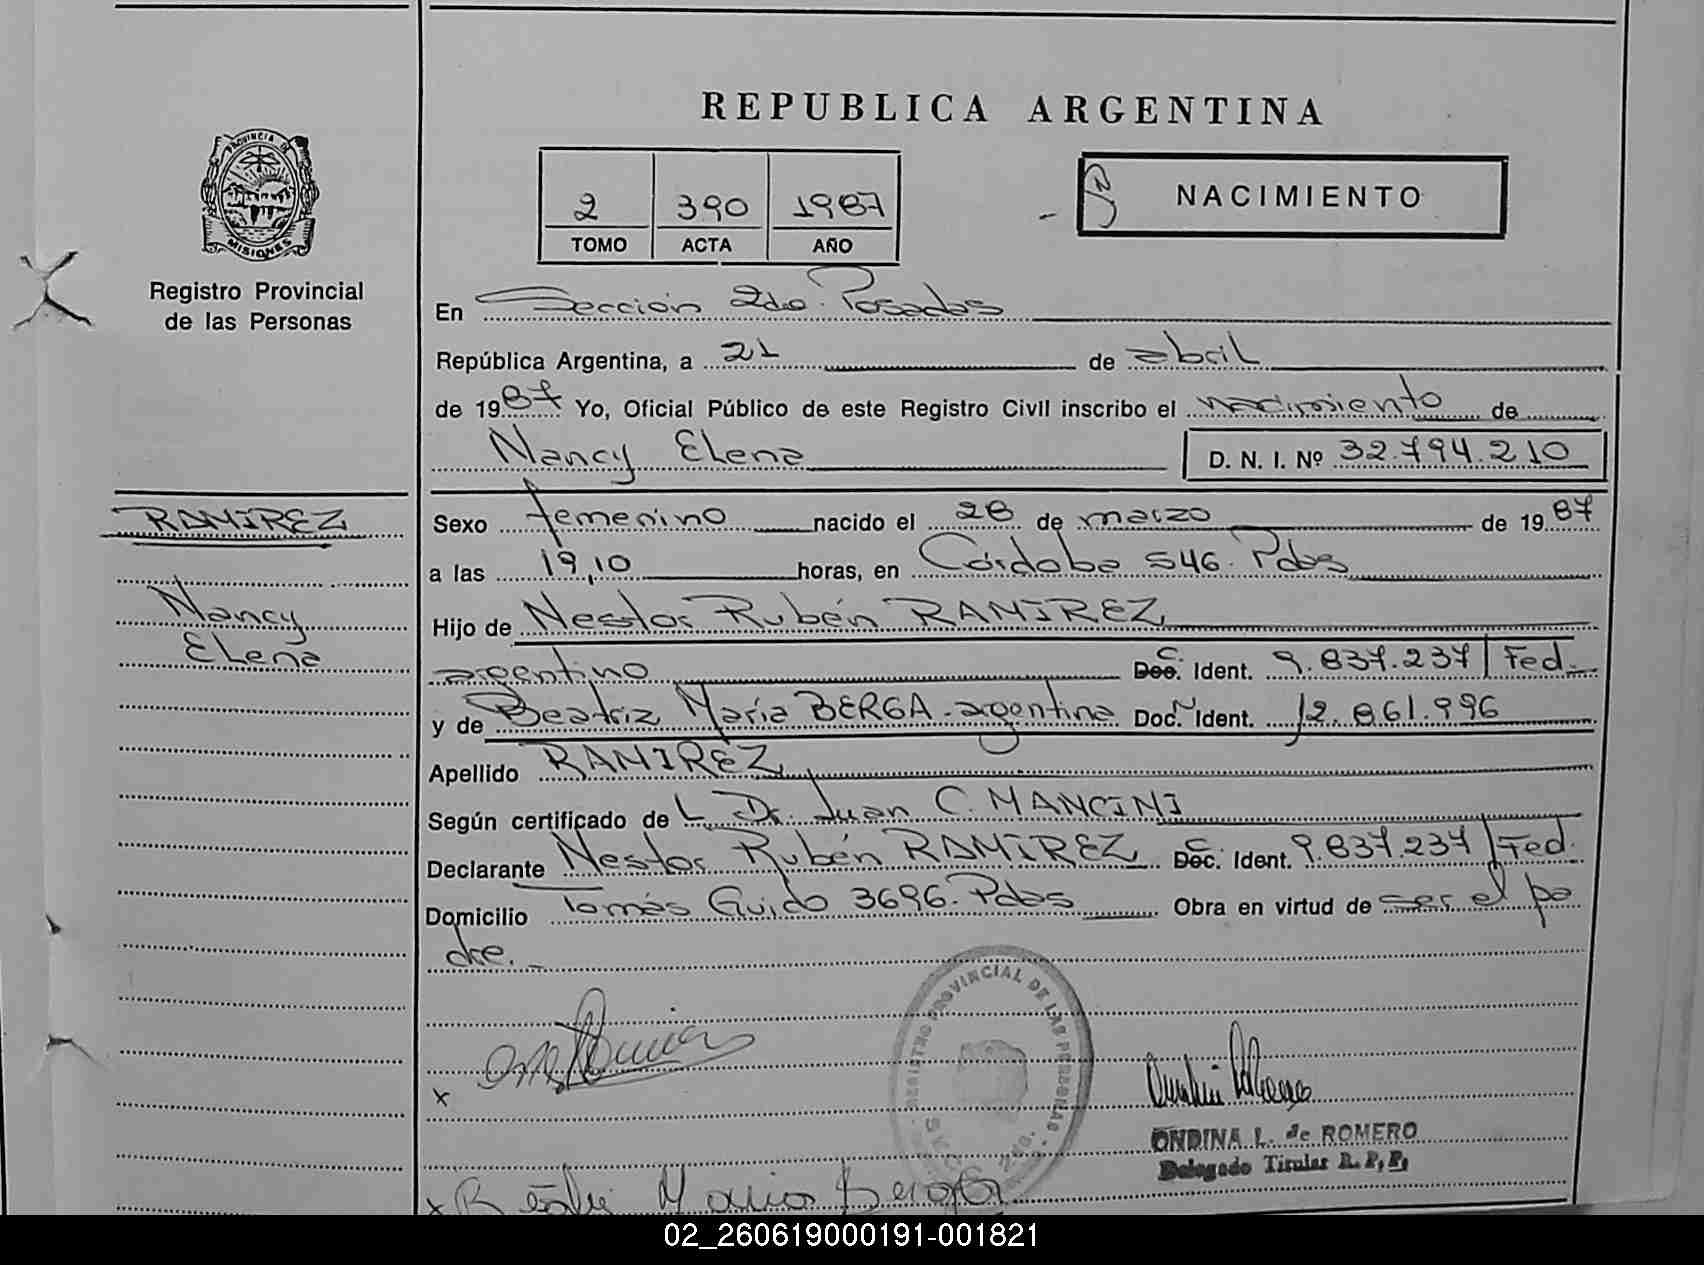 REPUBLICA ARGENTINA
PROVINCIA DE
MISIONES
Registro Provincial
de las Personas
2 390 1987
TOMO ACTA AÑO
NACIMIENTO
En Sección 2da. Posadas
República Argentina, a 21 de abril
de 1987 Yo, Oficial Público de este Registro Civil inscribo el nacimiento de
Nancy Elena D. N. I. Nº 32.794.210
RAMIREZ
Nancy
Elena
Sexo femenino nacido el 28 de marzo de 1987
a las 19,10 horas, en Córdoba 546. Pdas
Hijo de Nestor Rubén RAMIREZ
argentino Doc. C. Ident. 9.837.237/Fed.
y de Beatriz María BERGA - argentina Doc. N Ident. 12.861.996
Apellido RAMIREZ
Según certificado de L Dr. Juan C. MANCINI
Declarante Nestor Rubén RAMIREZ Doc. C. Ident. 9.837.237/Fed.
Domicilio Tomás Guido 3696. Pdas Obra en virtud de ser el pa
dre.
REGISTRO PROVINCIAL DE LAS PERSONAS
SECC. 2da.
x
ONDINA L. de ROMERO
Delegado Titular R. P. P.
x Beatriz Maria Berga
02_260619000191-001821